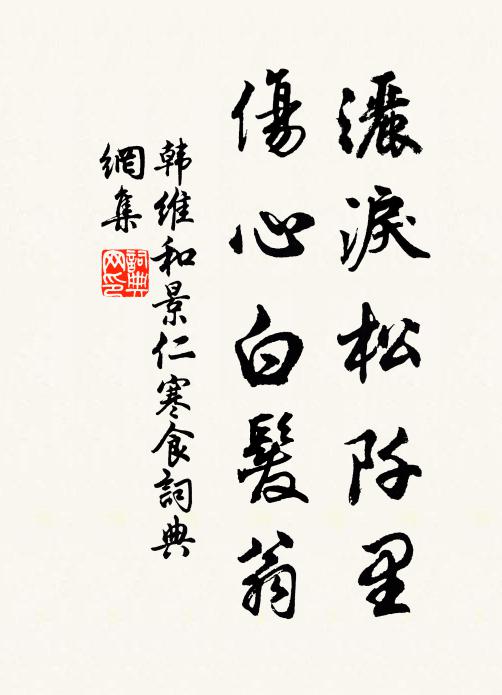 灑淚松阡里
傷心白髮翁
韩維和景仁寒食詞典
網集
詞典網印